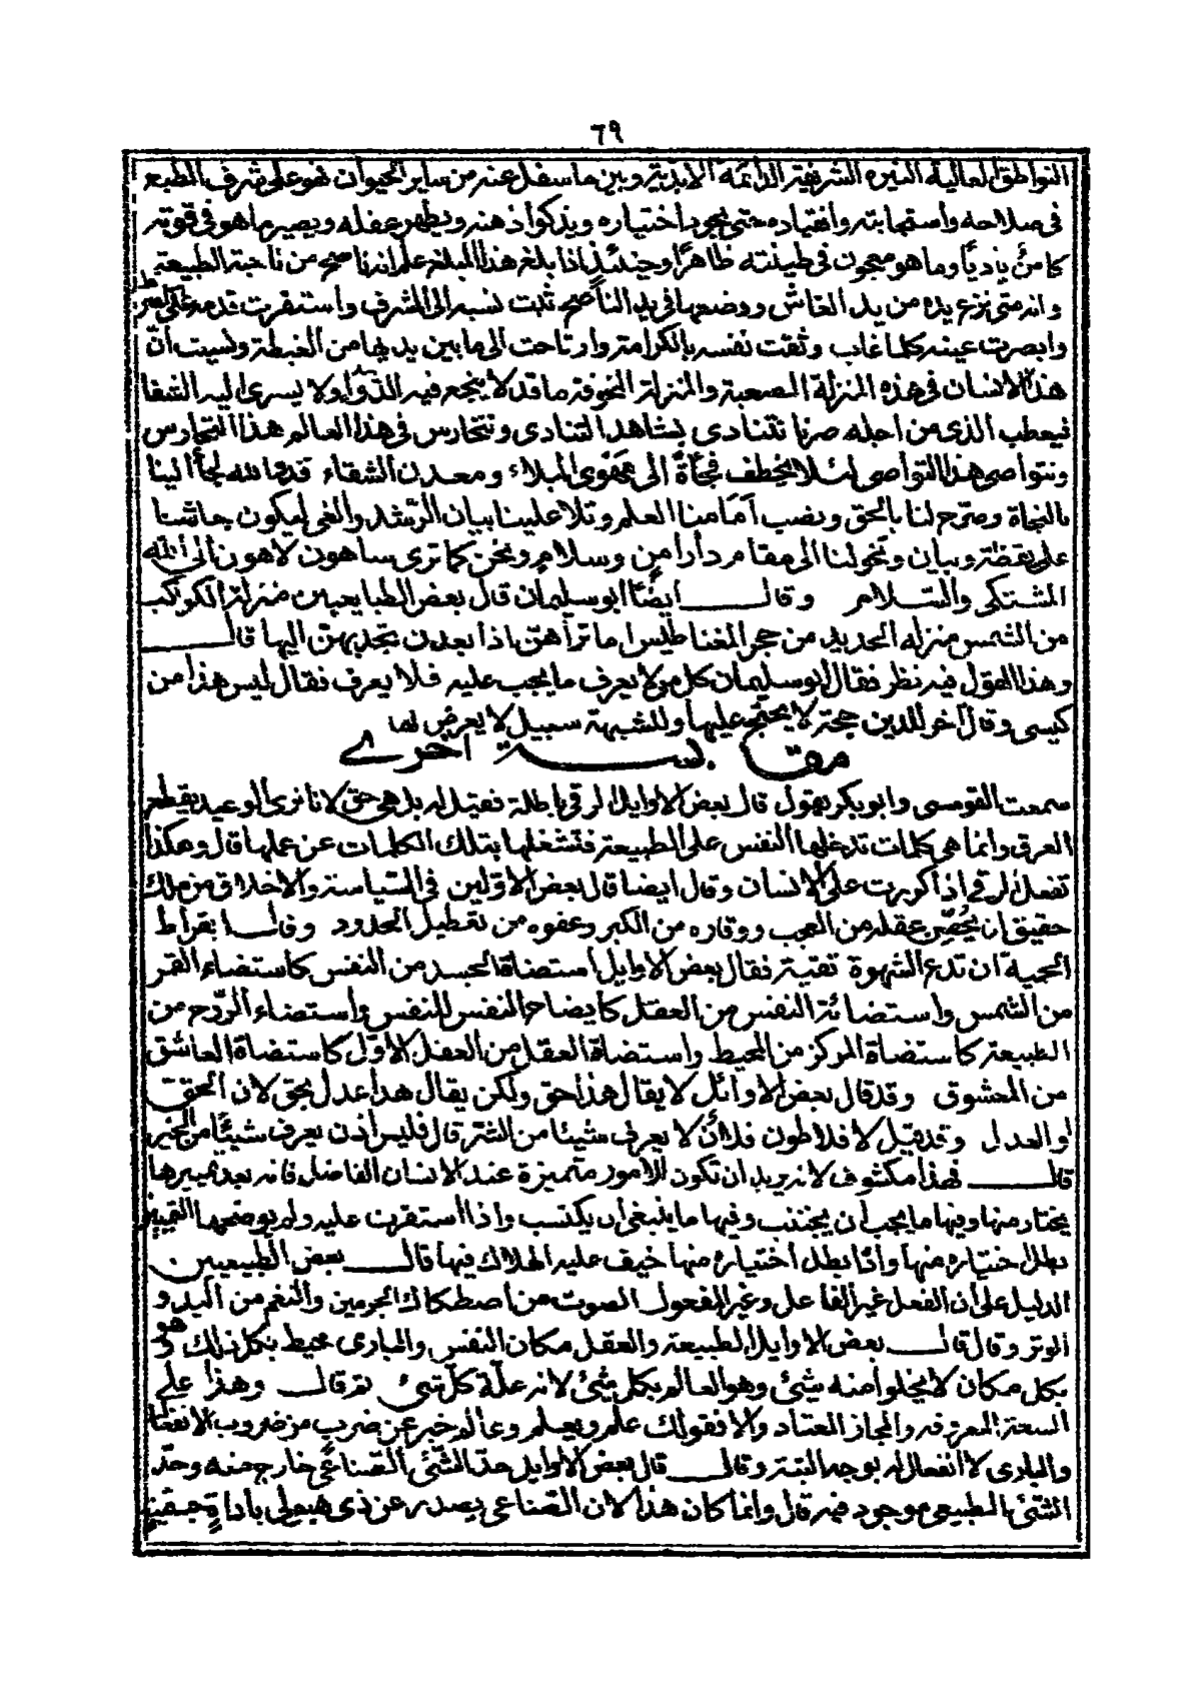 ٦٩
النواطق العالية النيرة الشريفة الدائمة الابدية وبين ما سفل عنه من ساير الحيوان نحو على شرف الطبع
في صلاحه وأستجابته وأنقياده حتى يجود أختياره ويذكوا ذهنه ويظهر عقله ويصير ما هو في قوته
كامن باديًا وما هو معجون في طينته ظاهرًا وحينئذ اذا بلغ هذا المبلغ علم انه ناصح من ناحية الطبيعة
وانه متى نزع يده من يد الغاش ووضعها في يد الناصح ثبت نسبه الى الشرف وأستقرت قدمه على
وابصرت عينه كلما غاب وثقت نفسه بالكرامة وارتاحت الى ما بين يديها من الغبطة وليست انّ
هذا الانسان في هذه المنزلة الصعبة والمنزلة المخوفة ما قد لا ينجع فيه الدوأ ولا يسرى اليه الشفا
فيعطب الذى من اجله صرنا نتنادى بشاهد التنادى ونتحارس في هذا العالم هذا التحارس
ونتواصى هذا التواصى لئلا يخطف فجأةً الى مهوى البلاء ومعدن الشقاء قد والله لجأ الينا
بالنجاة وصرح لنا بالحق ونصب أمامنا العلم وتلا علينا بيان الرّشد والغى ليكون
على يقظة وبيان وتحولنا الى مقام دار أمن وسلام ونحن كما ترى ساهون لاهون الى الله
المشتكى والسلام وقال ايضًا ابو سليمان قال بعض الطبايعيين منزلة الكواكب
من الشمس منزلة الحديد من حجر المغناطيس اما تراهن اذا بعدن تجذبهن اليها قال
وهذا القول فيه نظر فقال ابو سليمان كل من لا يعرف ما يجب عليه فلا يعرف فقال ليس هذا من
كيسى وقال آخر للدين حجة لا يحتج عليها وللشبهة سبيل لا يعرض لها
مقابسة اخرى
سمعت القومسى وابو بكر يقول قال بعض الاوايل الرقى باطلة فقيل له بل هى حق لانا نرى الوعيد يقطع
العرق وانما هى كلمات تدخلها النفس على الطبيعة فتشغلها بتلك الكلمات عن عملها قال وهكذا
تفعل الرقى اذا كررت على الانسان وقال ايضا قال بعض الاولين في السياسة والاخلاق من ملك
حقيق ان يحصّن عقله من العجب ووقاره من الكبر وعفوه من تعطيل الحدود وقال ابقراط
الحمية ان تدع الشهوة تقية فقال بعض الاوايل أستضاة الجسد من النفس كاستضاء القمر
من الشمس واستضائة النفس من العقل كايضاح النفس للنفس واستضاء الرّوح من
الطبيعة كاستضاة المركز من المحيط واستضاة العقل من العقل الاوّل كاستضاة العاشق
من المعشوق وقد قال بعض الاوائل لا يقال هذا حق ولكن يقال هذا عدل بحق لان الحق
او العدل وقد قيل لافلاطون فلانٌ لا يعرف شيئا من الشر قال فليس اذن يعرف شيئًا من الخير
قال فهذا مكشوف لانه يريد ان تكون الامور متميزة عند الانسان الفاضل فانه بعد تمييزها
يختار منها وفيها ما يجب أن يجتنب وفيها ما ينبغى أن يكتسب واذا استقرت عليه ولم يوضحها التمييز
بطل اختياره منها واذا بطل أختياره منها خيف عليه الهلاك فيها قال بعض الطبيعيين
الدليل على أن الفعل غير الفاعل وغير المفعول الصوت من أصطكاك الجرمين والنغم من اليد و
الوتر وقال قال بعض الاوايل الطبيعة والعقل مكان النفس والبارى محيط بكل ذلك وهو
بكل مكان لا يخلوا منه شيئ وهو العالم بكل شيئ لانه علة كلّ شيئ ثم قال وهذا على
السعة المعروفة والمجاز المعتاد والا فقولك علم ويعلم وعالم خبر عن ضرب من ضروب الانفعال
والبارى لا انفعال له بوجه البتة وقال قال بعض الاوايل حدّ الشّئ الصّناعى خارج منه وحدّ
الشئ الطبيعى موجود فيه قال وانما كان هذا لان الصّناعى يصدر عن ذى هيولى باداة